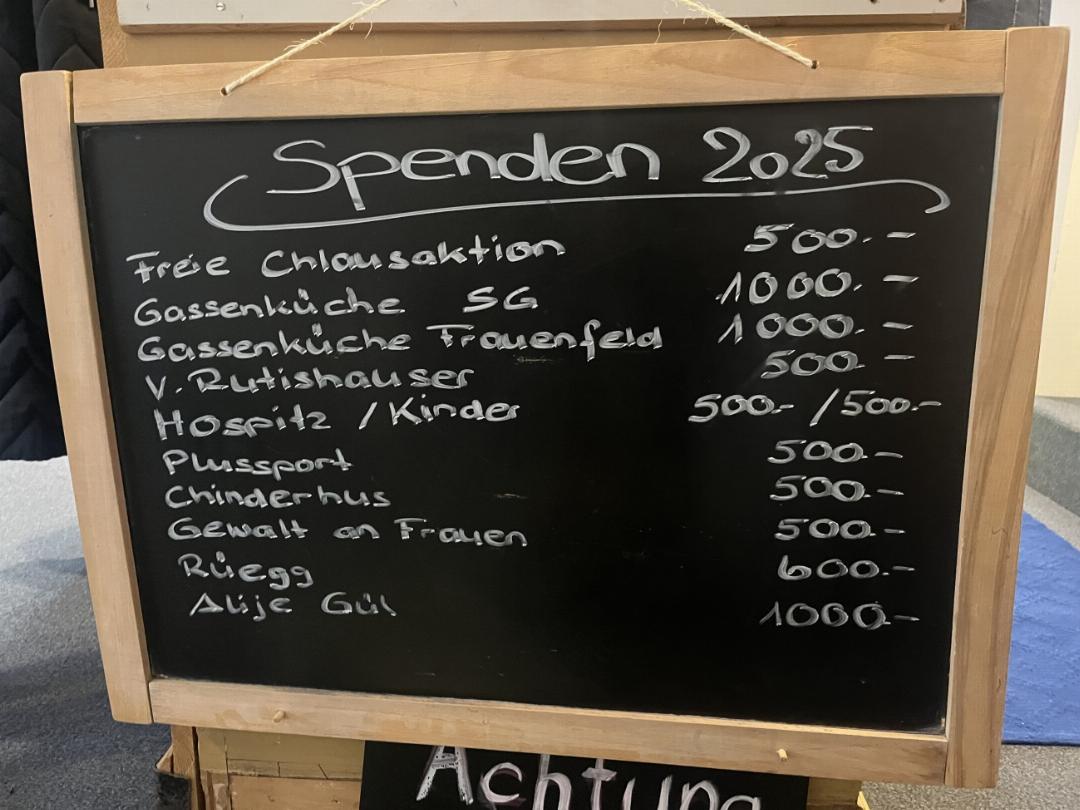 Spenden 2025
Freie Chlausaktion 500.-
Gassenküche SG 1000.-
Gassenküche Frauenfeld 1000.-
V. Rutishauser 500.-
Hospitz / Kinder 500.- / 500.-
Plussport 500.-
Chinderhus 500.-
Gewalt an Frauen 500.-
Rüegg 600.-
Alije Gül 1000.-
Achtung